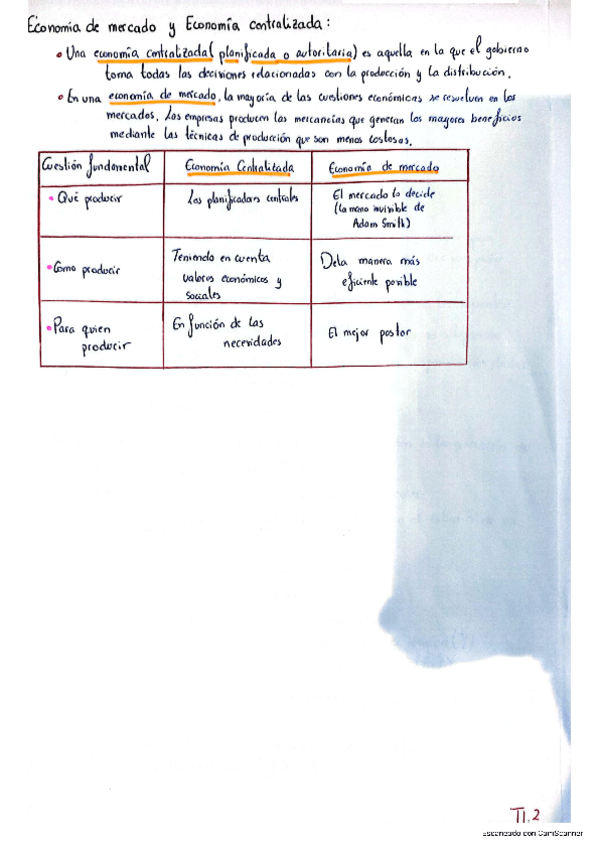 Economia de mercado y Economía centralizada:
• Una economía centralizada (planificada o autoritaria) es aquella en la que el gobierno
toma todas las decisiones relacionadas con la producción y la distribución.
• En una economía de mercado, la mayoría de las cuestiones económicas se resuelven en los
mercados. Las empresas producen las mercancías que generan los mayores beneficios
mediante las técnicas de producción que son menos costosas.
Cuestión fundamental Economía Centralizada Economía de mercado
• Qué producir Los planificadores centrales El mercado lo decide
(la mano invisible de
Adam Smith)
• Como producir Teniendo en cuenta De la manera más
valores económicos y eficiente posible
sociales
• Para quien En función de las El mejor postor
producir necesidades
T1.2
Escaneado con CamScanner